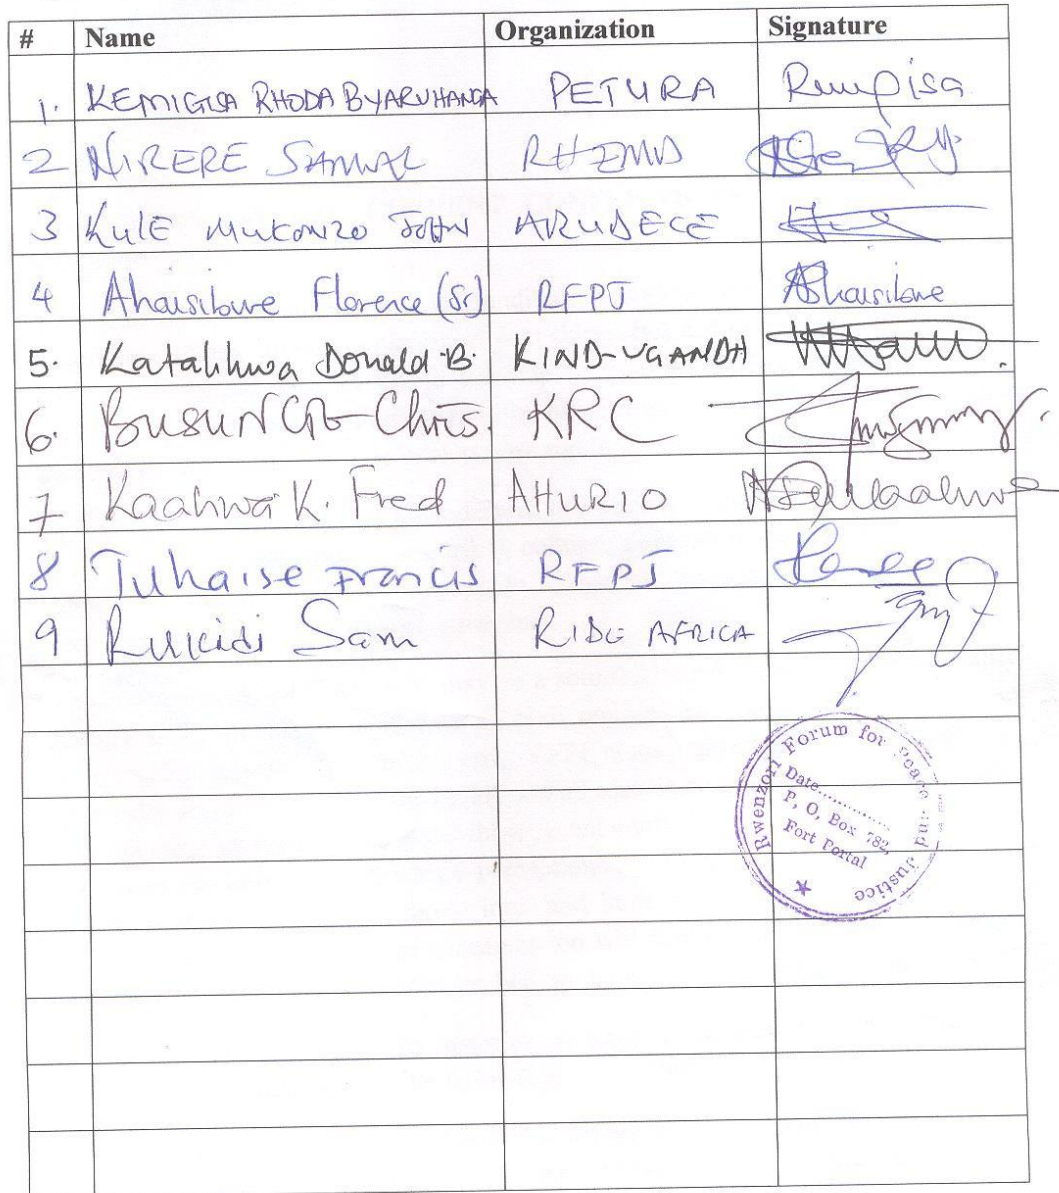 # Name Organization Signature
1. KEMIGISA RHODA BYARUHANGA PETURA
2 NIRERE SAMUEL
3 KulE MukoNzo JOHN ARUDECE
4 Ahaisibwe Florence (Sr) RFPJ Ahaisibwe
5. Katahhwa Donald B. KIND-UGANDA
6. BUSUNGE Chris. KRC
7 Kaahwa K. Fred AHURIO
8 Tuhaise Francis RFPJ
9 Rukidi Sam RIDE AFRICA
Rwenzori Forum for Peace and Justice
Date..............
P, O, Box 782,
Fort Portal